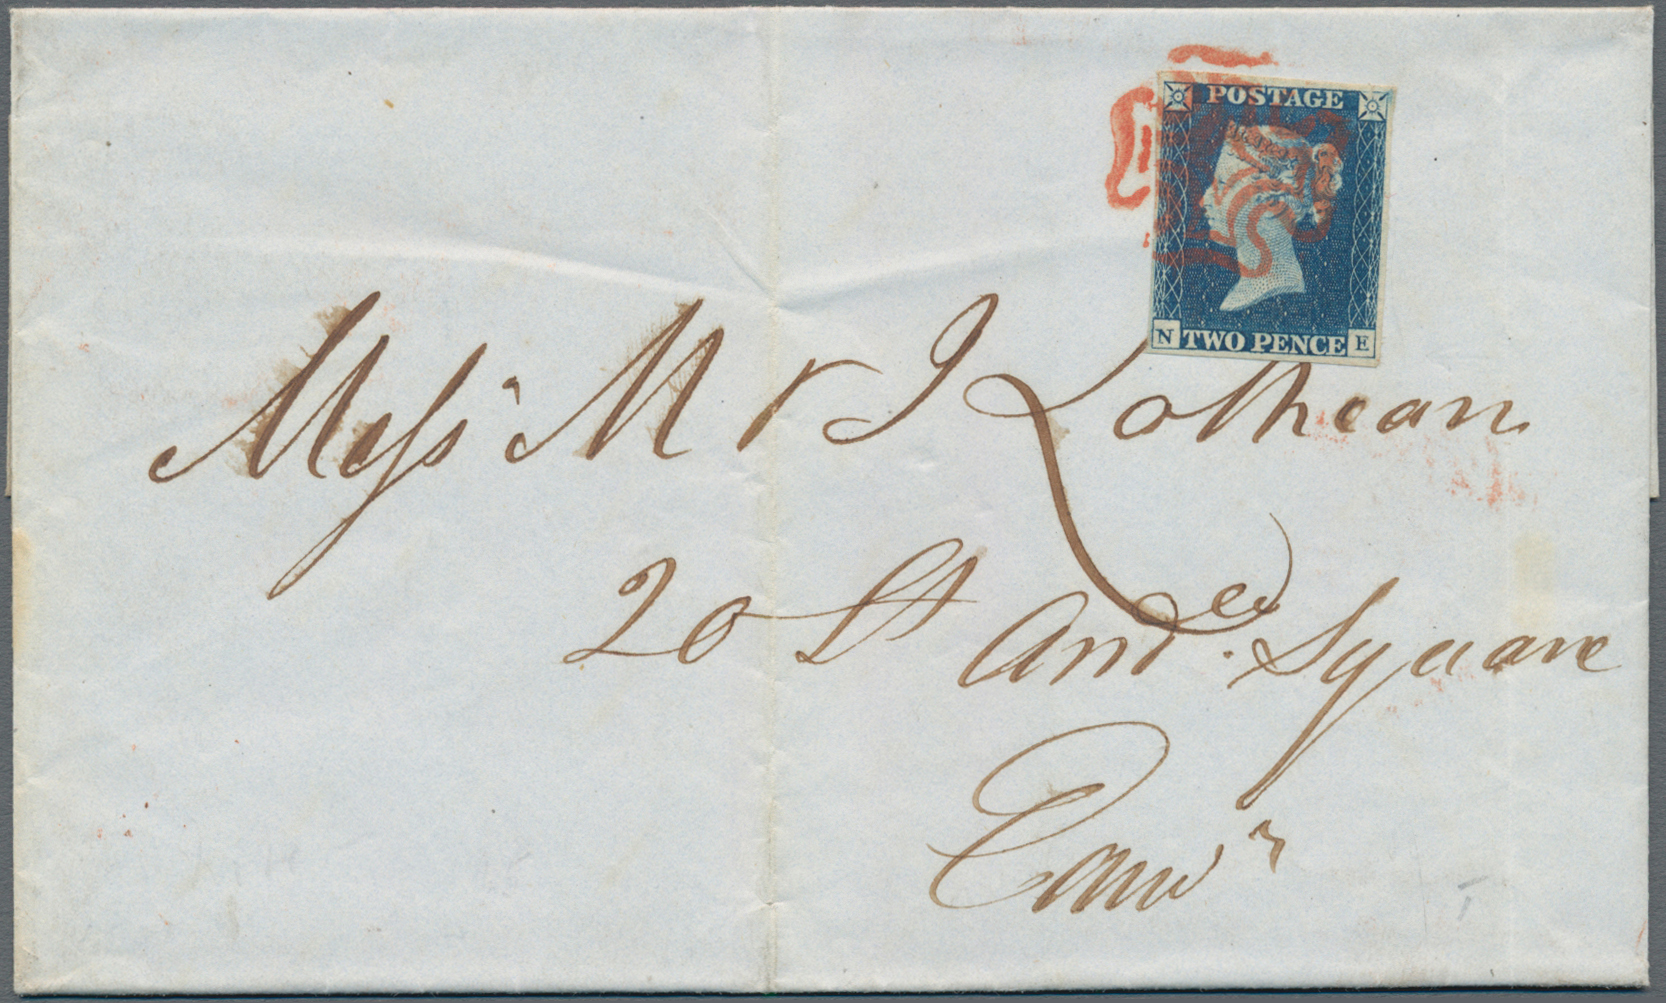 POSTAGE
N TWO PENCE E
Mess M & J Lothian
20 St And. Square
Edinr